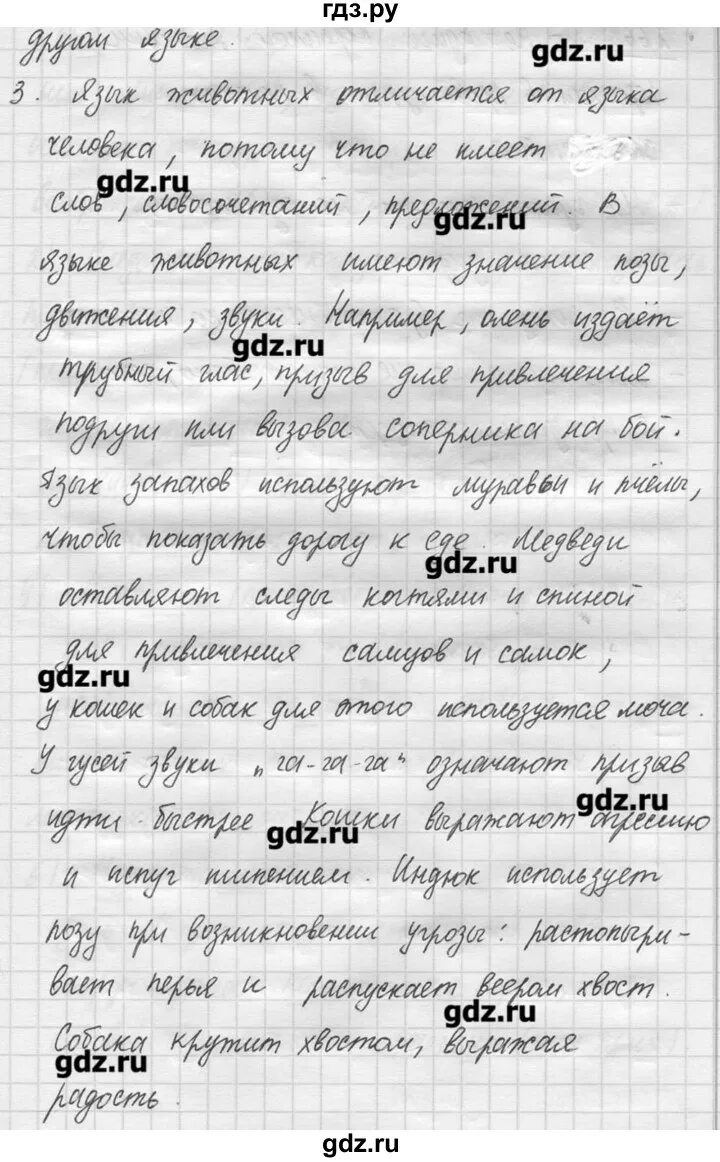 гдз.ру
другом языке.
gdz.ru
3. Язык животных отличается от языка
человека, потому что не имеет
gdz.ru
слов, словосочетаний, предложений. В
gdz.ru
языке животных имеют значение позы,
движения, звуки. Например, олень издаёт
gdz.ru
трубный глас, призыв для привлечения
подруги или вызова соперника на бой.
Язык запахов используют муравьи и пчёлы,
чтобы показать дорогу к еде. Медведи
gdz.ru
оставляют следы когтями и спиной
для привлечения самцов и самок,
gdz.ru
у кошек и собак для этого используется моча.
У гусей звуки "га-га-га" означают призыв
gdz.ru
идти быстрее. Кошки выражают агрессию
gdz.ru
и испуг шипением. Индюк использует
позу при возникновении угрозы: растопыри-
вает перья и распускает веером хвост.
gdz.ru
Собака крутит хвостом, выражая
gdz.ru
радость.
gdz.ru